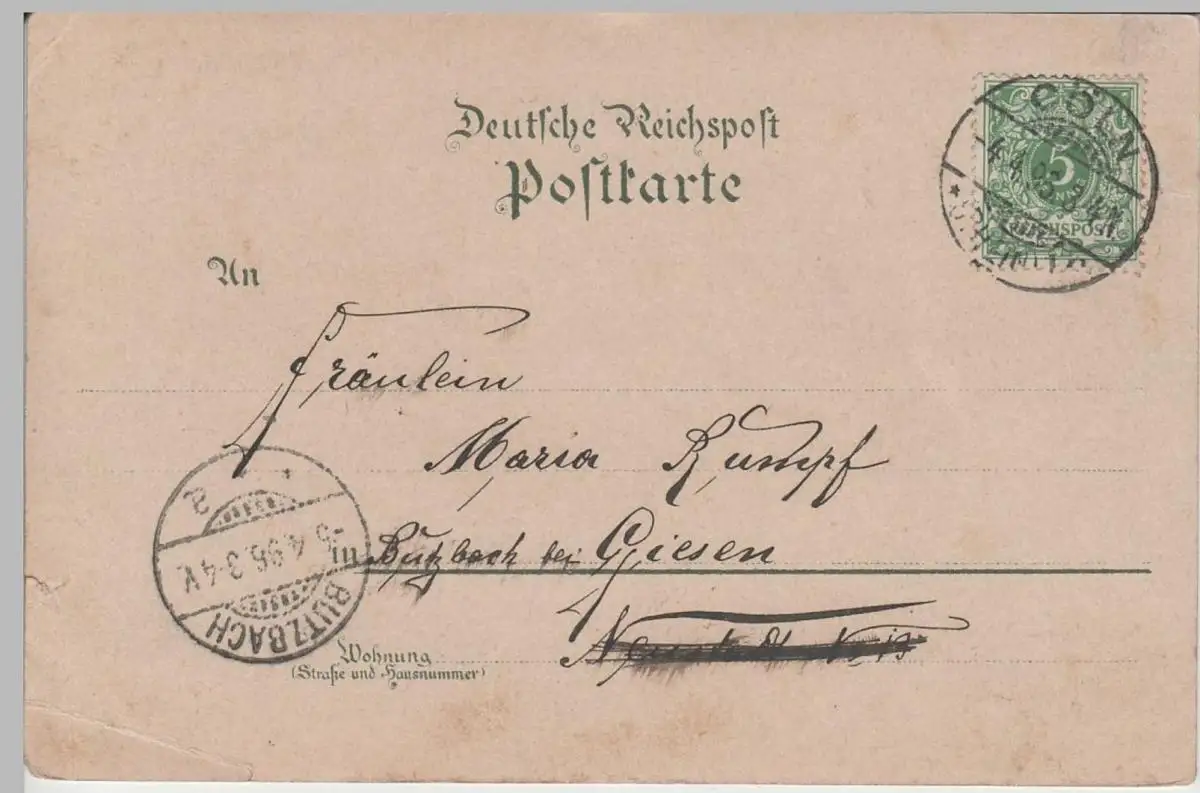 Deutsche Reichspost
Postkarte
CÖLN
5
REICHSPOST
An
Fräulein
Maria Rumpf
in Butzbach bei Giesen
-5.4.96.3-4V.
BUTZBACH
Wohnung
(Straße und Hausnummer)